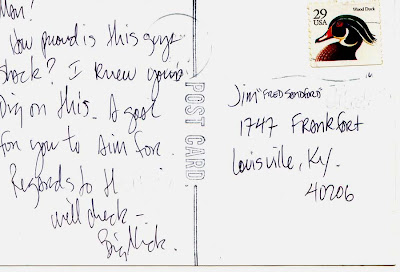 Man!
How proud is this guys
stock? I knew you'd
Dig on this. A goal
for you to Aim for.
Regards to th
will check -
Big Nick.
POST CARD
29
USA
Wood Duck
Jim "FRED SANDFORD"
1747 Frankfort
Louisville, Ky.
40206